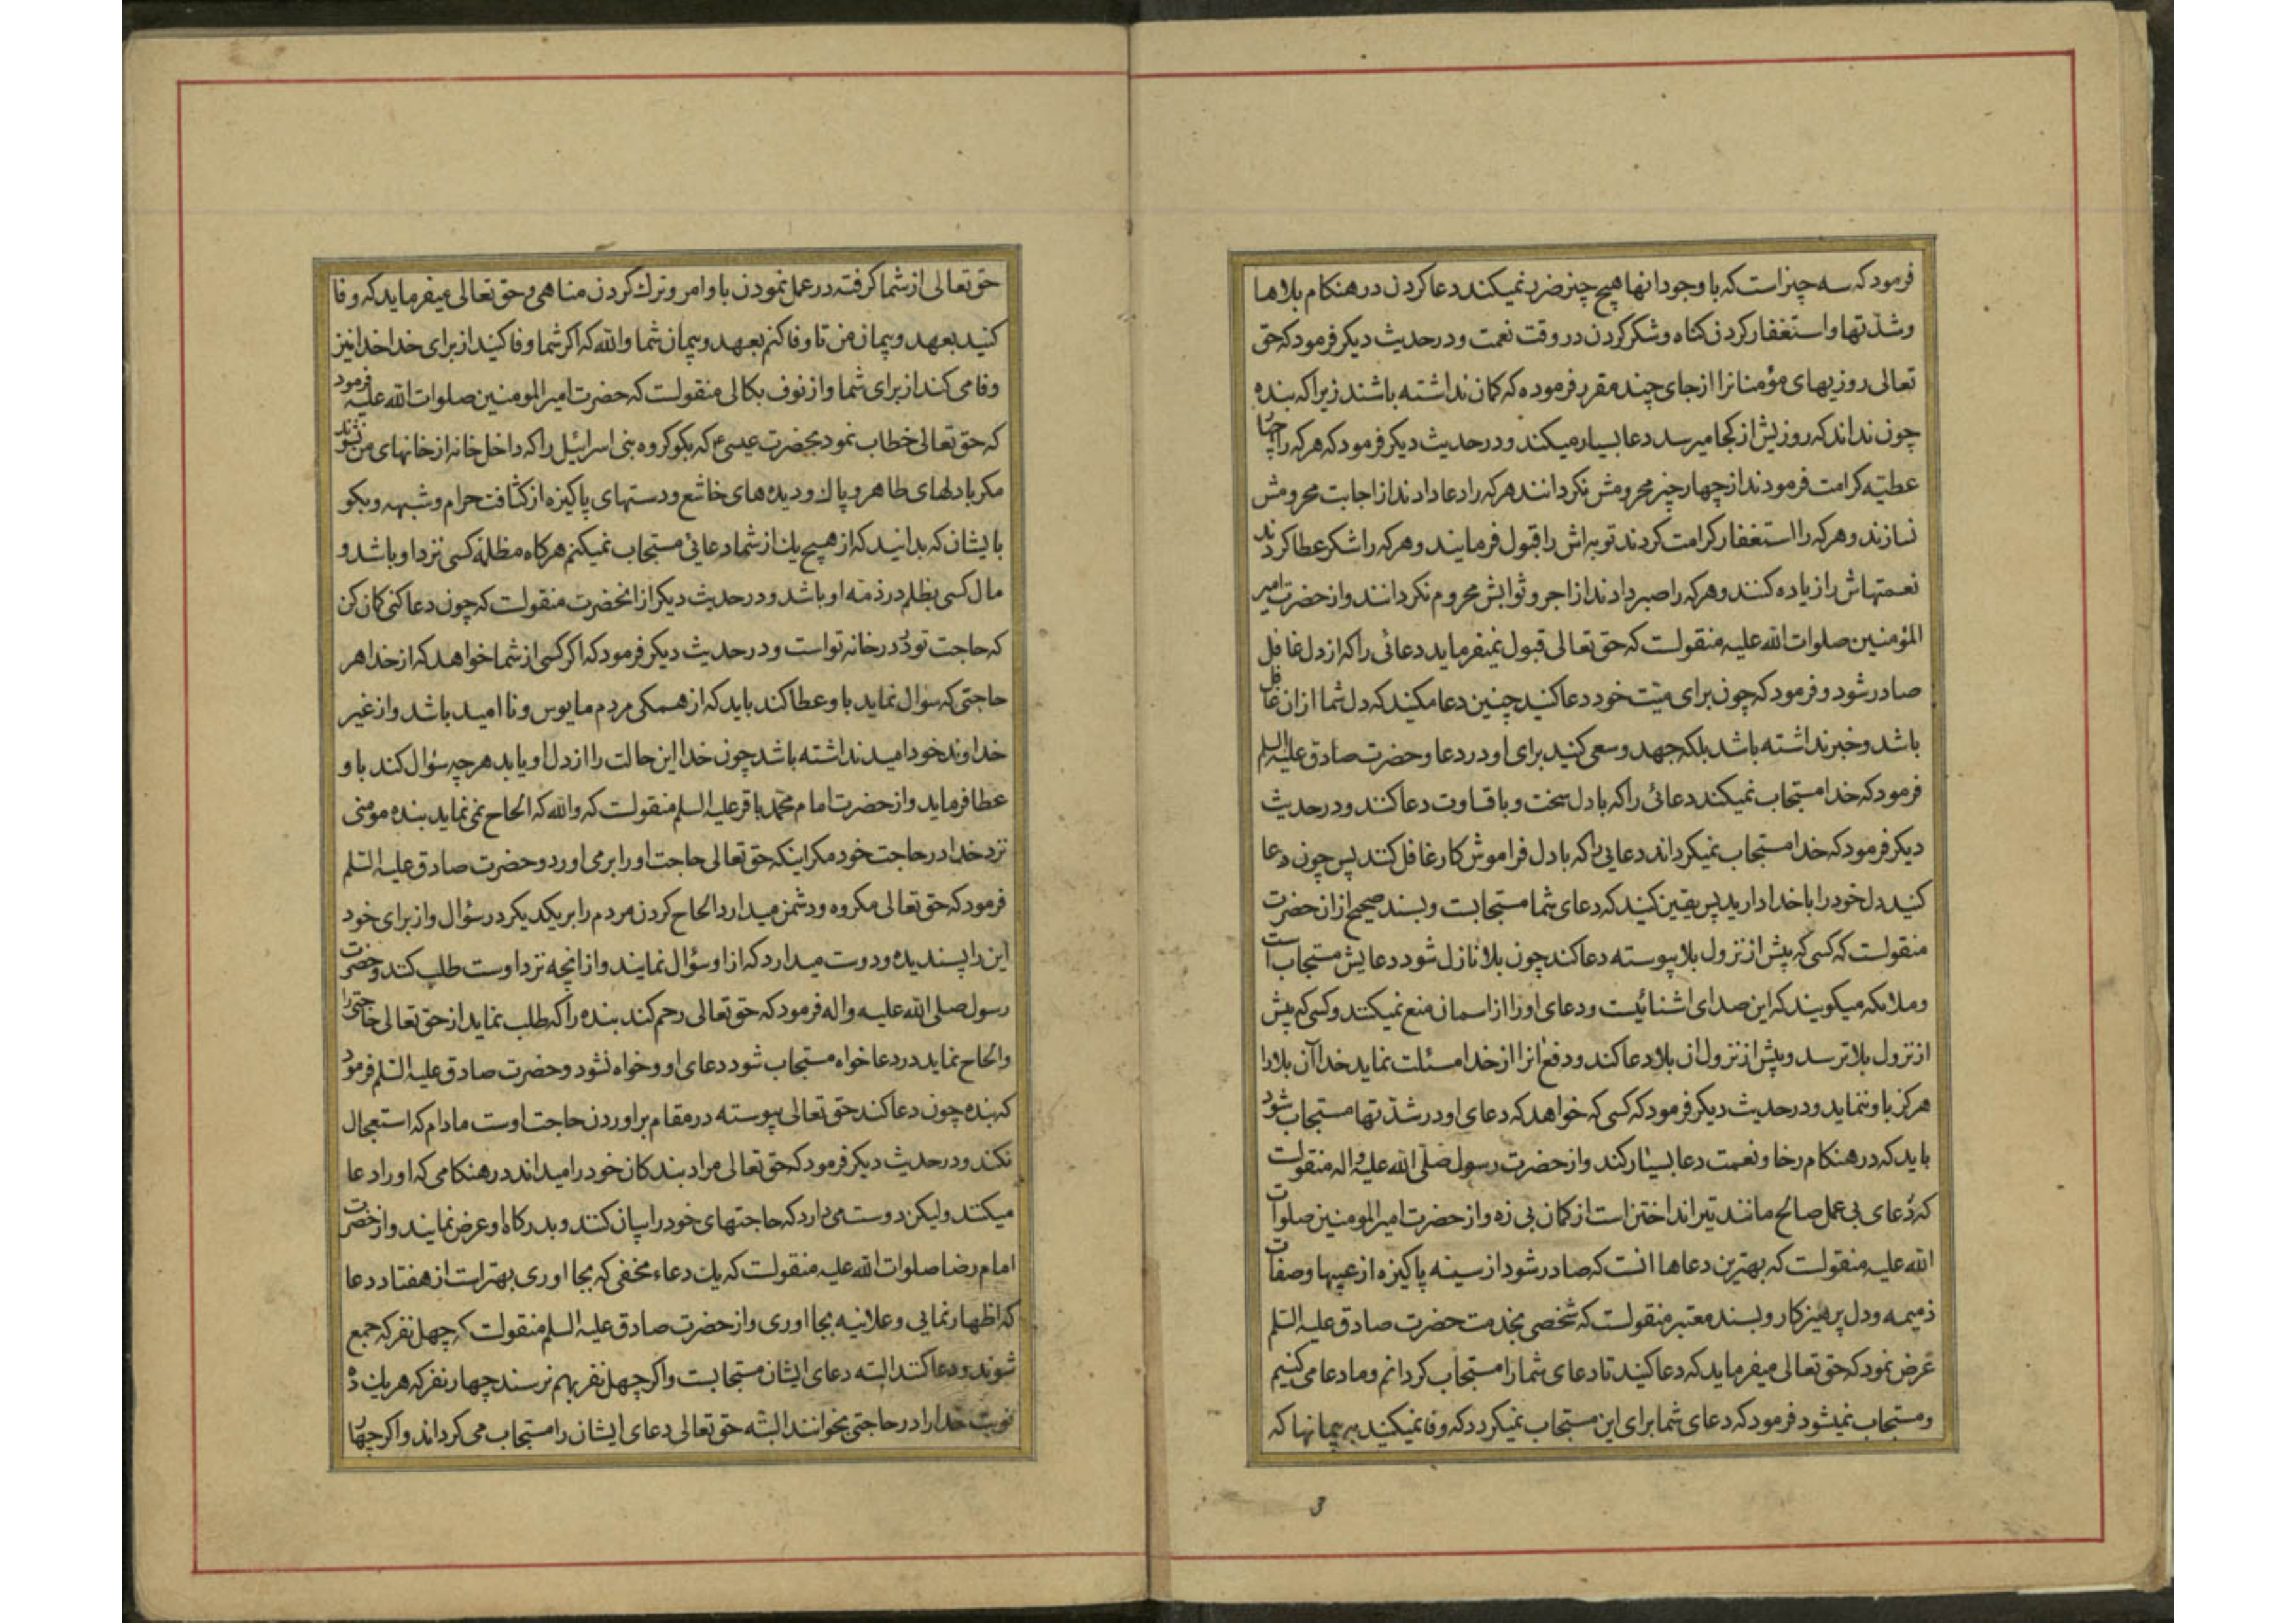 فرمود که سه چیز است که با وجود انها هیچ چیز ضرر نمیکند دعا کردن در هنکام بلاها
وشدّتها و استغفار کردن کناه و شکر کردن در وقت نعمت و در حدیث دیکر فرمود که حق
تعالی روزیهای مؤمنانرا از جای چند مقرر فرموده که کمان نداشته باشند زیرا که بنده
چون نداند که روزیش از کجا میرسد دعا بسیار میکند و در حدیث دیکر فرمود که هر که را چهار
عطیّه کرامت فرمودند از چهار چیز محرومش نکردانند هر که را دعا دادند از اجابت محرومش
نسازند و هر که را استغفار کرامت کردند توبه اش را قبول فرمایند و هر که را شکر عطا کردند
نعمتهاش را زیاده کنند و هر که را صبر دادند از اجر و ثوابش محروم نکردانند و از حضرت امیر
المؤمنین صلوات الله علیه منقولست که حق تعالی قبول نمیفرماید دعائی را که از دل غافل
صادر شود و فرمود که چون برای میّت خود دعا کنید چنین دعا مکنید که دل شما از ان غافل
باشد و خبر نداشته باشد بلکه جهد و سعی کنید برای او در دعا و حضرت صادق علیه السلم
فرمود که خدا مستجاب نمیکند دعائی را که با دل سخت و با قساوت دعا کنند و در حدیث
دیکر فرمود که خدا مستجاب نمیکرداند دعایی را که با دل فراموش کار غافل کنند پس چون دعا
کنید دل خود را با خدا دارید پس یقین کنید که دعای شما مستجابست و بسند صحیح از ان حضرت
منقولست که کسی که پیش از نزول بلا پیوسته دعا کند چون بلا نازل شود دعایش مستجاب است
و ملائکه میکویند که این صدای اشنائیست و دعای او را از اسمان منع نمیکنند و کسی که پیش
از نزول بلا ترسد و پیش از نزول ان بلا دعا کند و دفع انرا از خدا مسئلت نماید خدا آن بلا را
هرکز باو ننماید و در حدیث دیکر فرمود که کسی که خواهد که دعای او در شدّتها مستجاب شود
باید که در هنکام رخا و نعمت دعا بسیار کند و از حضرت رسول صلّی الله علیه و اله منقولست
که دُعای بی عمل صالح مانند تیر انداختن است از کمان بی زه و از حضرت امیر المومنین صلوات
الله علیه منقولست که بهترین دعاها انست که صادر شود از سینه پاکیزه از عیبها و صفات
ذمیمه و دل پرهیزکار و بسند معتبر منقولست که شخصی بخدمت حضرت صادق علیه السّلم
عرض نمود که حق تعالی میفرماید که دعا کنید تا دعای شما را مستجاب کردانم و ما دعا می کنیم
و مستجاب نمیشود فرمود که دعای شما برای این مستجاب نمیکردد که وفا نمیکنید به پیمانها که
3
حق تعالی از شما کرفته در عمل نمودن باوامر و ترك کردن مناهی و حق تعالی میفرماید که وفا
کنید بعهد و پیمان من تا وفا کنم بعهد و پیمان شما والله که اکر شما وفا کنید از برای خدا خدا نیز
وفا می کند از برای شما و از نوف بکالی منقولست که حضرت امیر المومنین صلوات الله علیه فرمود
که حق تعالی خطاب نمود بحضرت عیسی ع که بکو کروه بنی اسرائیل را که داخل خانه از خانهای من نشوند
مکر با دلهای طاهر و پاك و دیده های خاشع و دستهای پاکیزه از کثافت حرام و شبهه و بکو
بایشان که بدانید که از هیچ یك از شما دعائی مستجاب نمیکنم هرکاه مظلمه کسی نزد او باشد و
مال کسی بظلم در ذمه او باشد و در حدیث دیکر از انحضرت منقولست که چون دعا کنی کمان کن
که حاجت تو در در خانه تو است و در حدیث دیکر فرمود که اکر کسی از شما خواهد که از خدا هر
حاجتی که سوال نماید باو عطا کند باید که از همکی مردم مایوس و نا امید باشد و از غیر
خداوند خود امید نداشته باشد چون خدا این حالت را از دل او یابد هر چه سؤال کند باو
عطا فرماید و از حضرت امام محمّد باقر علیه السلم منقولست که والله که الحاح نمی نماید بنده مومنی
نزد خدا در حاجت خود مکر اینکه حق تعالی حاجت او را برمی اورد و حضرت صادق علیه السّلم
فرمود که حق تعالی مکروه و دشمن میدارد الحاح کردن مردم را بر یکدیکر در سؤال و از برای خود
این را پسندیده و دوست میدارد که از او سؤال نمایند و از انچه نزد اوست طلب کنند و حضرت
رسول صلی الله علیه و اله فرمود که حق تعالی رحم کند بنده را که طلب نماید از حق تعالی حاجتی را
و الحاح نماید در دعا خواه مستجاب شود دعای او و خواه نشود و حضرت صادق علیه السّلم فرمود
که بنده چون دعا کند حق تعالی پیوسته در مقام براوردن حاجت اوست مادام که استعجال
نکند و در حدیث دیکر فرمود که حق تعالی مراد بندکان خود را میداند در هنکامی که او را دعا
میکنند و لیکن دوست می دارد که حاجتهای خود را بیان کنند و بدرکاه او عرض نمایند و از حضرت
امام رضا صلوات الله علیه منقولست که یك دعاء مخفی که بجا اوری بهتر است از هفتاد دعا
که اظهار نمایی و علانیه بجا اوری و از حضرت صادق علیه السلم منقولست که چهل نفر که جمع
شوند و دعا کنند البته دعای ایشان مستجابست و اکر چهل نفر بهم نرسند چهار نفر که هر یك ده
نوبت خدا را در حاجتی بخوانند البتّه حق تعالی دعای ایشان را مستجاب می کرداند و اکر چهار